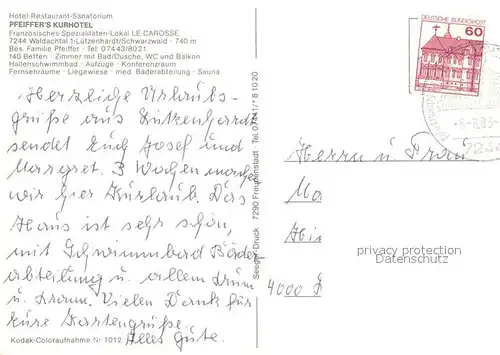 Hotel-Restaurant-Sanatorium
PFEIFFER'S KURHOTEL
Französisches Spezialitäten-Lokal LE.CAROSSE
7244 Waldachtal 1-Lützenhardt/Schwarzwald · 740 m
Bes. Familie Pfeiffer · Tel. 07443/8021
140 Betten · Zimmer mit Bad/Dusche, WC und Balkon
Hallenschwimmbad · Aufzüge · Konferenzraum
Fernsehräume · Liegewiese · med Badeabteilung · Sauna
Herzliche Urlaubs-
grüße aus Lützenhardt
sendet Euch Josef und
Margret. 3 Wochen machen
wir hier Urlaub. Das
Haus ist sehr schön,
mit Schwimmbad Bäder
abteilung u. allem Drum
u. Dran. Vielen Dank für
Eure Kartengrüße.
Alles Gute.
Kodak-Coloraufnahme Nr 1012
Seeger-Druck 7290 Freudenstadt Tel. 07441/* 8 10 20
DEUTSCHE BUNDESPOST
60
Herrn u Frau
Ma
4000 D
privacy protection
Datenschutz